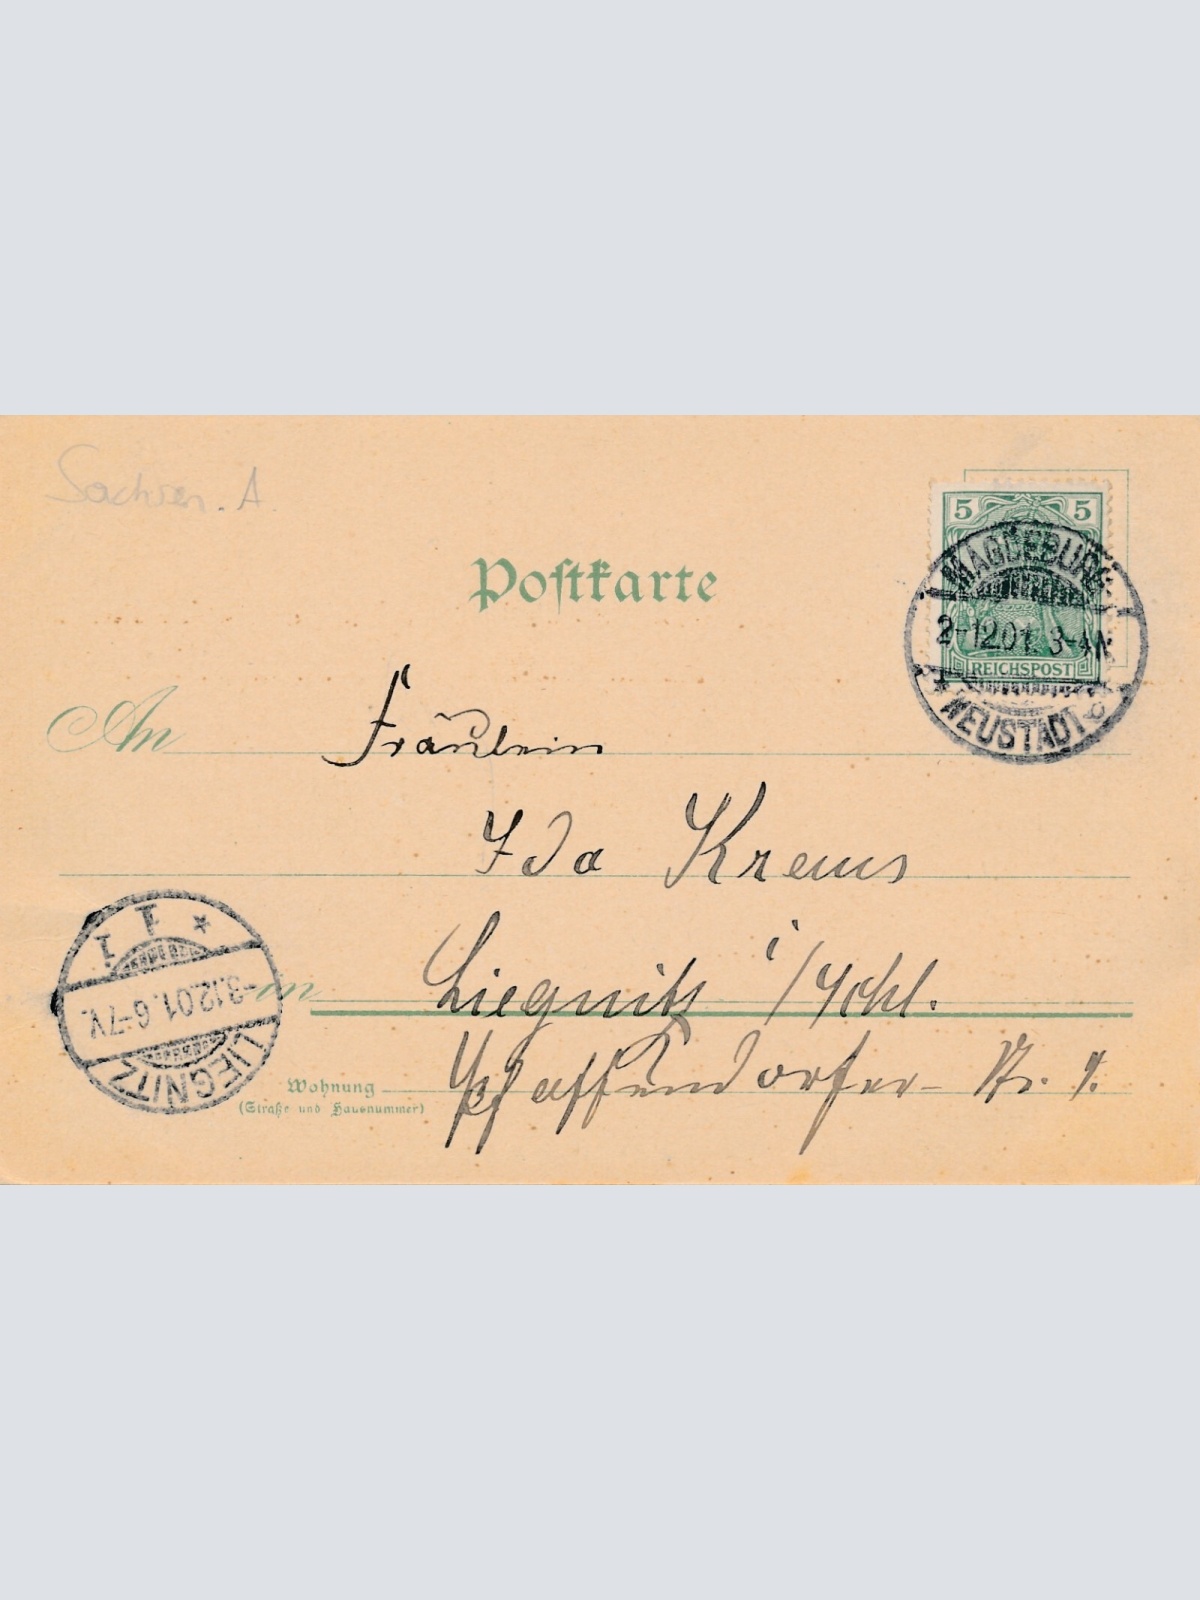 Sachsen. A.
Postkarte
5 5
MAGDEBURG
2-12.01. 3-4 N.
REICHSPOST
* NEUSTADT b
An Fräulein
Ida
Liegnitz i/Schl.
in
Wohnung
(Straße und Hausnummer)
Pfaffendorfer-
LIEGNITZ
-3.12.01. 6-7V.
* 1 1